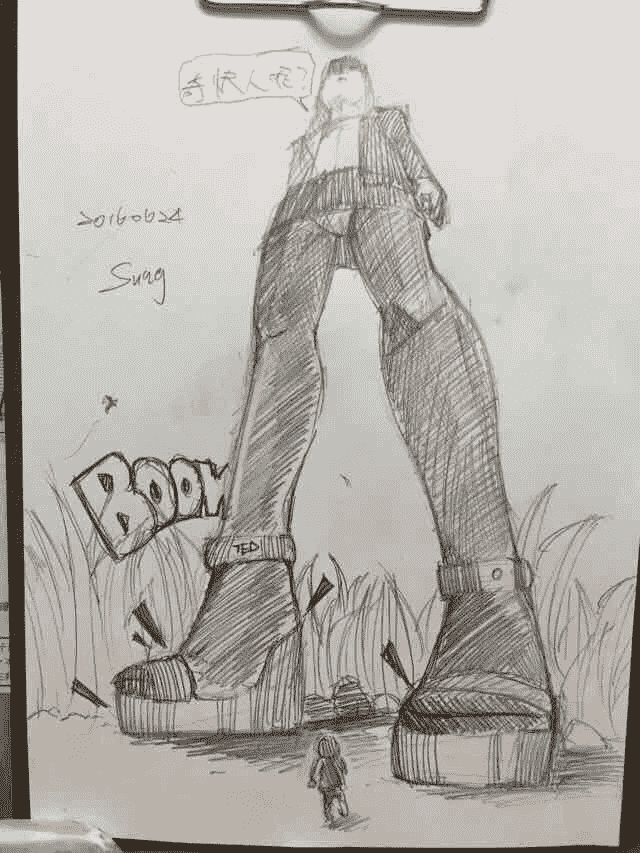 奇怪人呢?
20160624
Suag
BOOM
TED